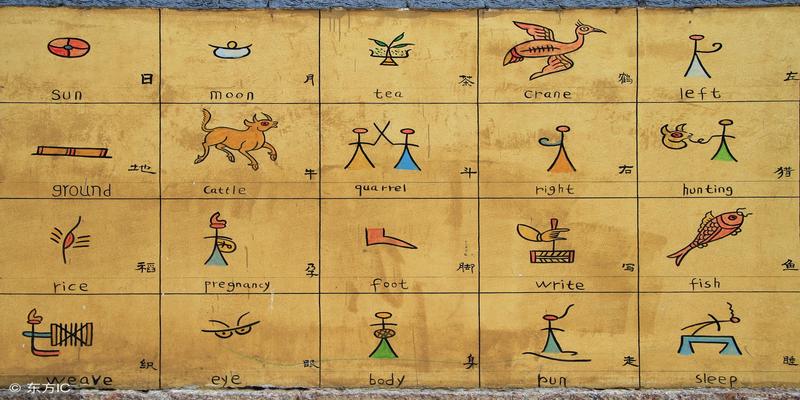 日
sun
月
moon
茶
tea
鹤
crane
左
left
地
ground
牛
cattle
斗
quarrel
右
right
猎
hunting
稻
rice
孕
pregnancy
脚
foot
写
write
鱼
fish
织
weave
眼
eye
身
body
走
run
睡
sleep
© 东方IC